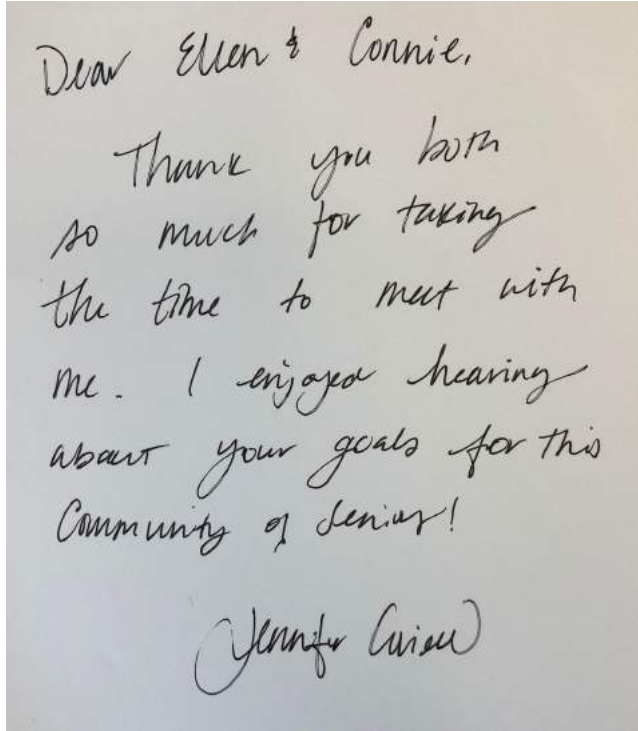 Dear Ellen & Connie,
Thank you both
so much for taking
the time to meet with
me. I enjoyed hearing
about your goals for this
Community of
Jennifer